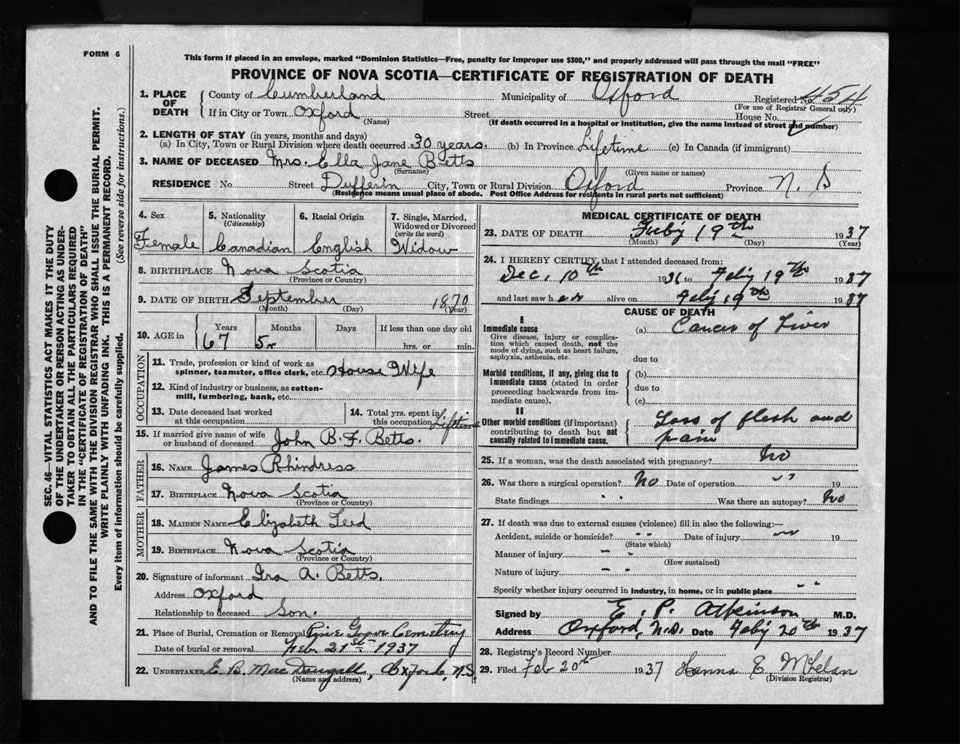 FORM 6
This form if placed in an envelope, marked "Dominion Statistics—Free, penalty for improper use $300," and properly addressed will pass through the mail "FREE"
PROVINCE OF NOVA SCOTIA—CERTIFICATE OF REGISTRATION OF DEATH
SEC. 46—VITAL STATISTICS ACT MAKES IT THE DUTY
OF THE UNDERTAKER OR PERSON ACTING AS UNDER-
TAKER TO OBTAIN ALL THE PARTICULARS REQUIRED
IN THE "CERTIFICATE OF REGISTRATION OF DEATH"
AND TO FILE THE SAME WITH THE DIVISION REGISTRAR WHO SHALL ISSUE THE BURIAL PERMIT.
WRITE PLAINLY WITH UNFADING INK. THIS IS A PERMANENT RECORD.
Every item of information should be carefully supplied. (See reverse side for instructions.)
1. PLACE OF DEATH County of Cumberland Municipality of Oxford Registered No. 454
(For use of Registrar General only)
If in City or Town Oxford Street House No.
(Name) (If death occurred in a hospital or institution, give the name instead of street and number)
2. LENGTH OF STAY (in years, months and days)
(a) In City, Town or Rural Division where death occurred 30 years. (b) In Province Lifetime (c) In Canada (if immigrant)
3. NAME OF DECEASED Mrs. Ella Jane Betts
(Surname) (Given name or names)
RESIDENCE No. Street Dufferin City, Town or Rural Division Oxford Province N. S
(Residence means usual place of abode. Post Office Address for residents in rural parts not sufficient)
4. Sex 5. Nationality (Citizenship) 6. Racial Origin 7. Single, Married, Widowed or Divorced (write the word)
Female Canadian English Widow
8. BIRTHPLACE Nova Scotia
(Province or Country)
9. DATE OF BIRTH September 1870
(Month) (Day) (Year)
10. AGE in Years Months Days If less than one day old
67 5 hrs. or min.
OCCUPATION
11. Trade, profession or kind of work as
spinner, teamster, office clerk, etc. House Wife
12. Kind of industry or business, as cotton-
mill, lumbering, bank, etc.
13. Date deceased last worked at this occupation 14. Total yrs. spent in this occupation Lifetime
15. If married give name of wife or husband of deceased John B. F. Betts.
FATHER
16. NAME James Rhindress
17. BIRTHPLACE Nova Scotia
(Province or Country)
MOTHER
18. MAIDEN NAME Elizabeth
19. BIRTHPLACE Nova Scotia
(Province or Country)
20. Signature of informant Ira A. Betts.
Address Oxford
Relationship to deceased Son.
21. Place of Burial, Cremation or Removal Pine Grove Cemetery
Date of burial or removal Feb 21st 1937
22. UNDERTAKER E. B. MacDougall, Oxford, N.S
(Name and address)
MEDICAL CERTIFICATE OF DEATH
23. DATE OF DEATH Feby 19th 1937
(Month) (Day) (Year)
24. I HEREBY CERTIFY, that I attended deceased from:
Dec. 10th 1936 to Feby 19th 1937
and last saw her alive on Feby 19th 1937
CAUSE OF DEATH
I
Immediate cause (a) Cancer of Liver
Give disease, injury or complica-
tion which caused death, not the
mode of dying, such as heart failure,
asphyxia, asthenia, etc. due to
Morbid conditions, if any, giving rise to (b)
immediate cause (stated in order due to
proceeding backwards from im-
mediate cause). (c)
II
Other morbid conditions (if important) Loss of flesh and
contributing to death but not pain
causally related to immediate cause.
25. If a woman, was the death associated with pregnancy? No
26. Was there a surgical operation? No Date of operation " 19
State findings " " Was there an autopsy? No
27. If death was due to external causes (violence) fill in also the following:—
Accident, suicide or homicide? " " Date of injury " 19
(State which)
Manner of injury " "
(How sustained)
Nature of injury " "
Specify whether injury occurred in industry, in home, or in public place " "
Signed by E. P. Atkinson M.D.
Address Oxford, N.S. Date Feby 20th 1937
28. Registrar's Record Number
29. Filed Feb 20th 1937 E McLean
(Division Registrar)